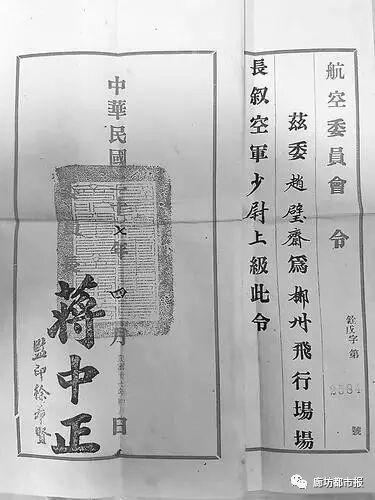 航空委員會 令
茲委趙璧齋為郴州飛行場場
長叙空軍少尉上級此令
銓戊字第2584號
中華民國二十七年四月日
蔣中正
監印徐
廊坊都市报